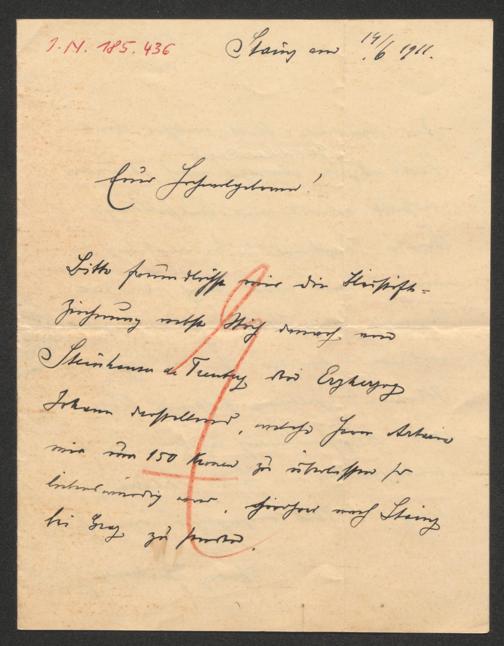 I.N. 185.436
Stainz am 14/6 1911.
Euer Hochwohlgeboren!
Bitte freundlichst mir die Bleistift=
zeichnung nebst Stich darnach von
Steinhauser de Treuberg den Erzherzog
Johann darstellend, welche Herr Artaria
mir um 150 Kronen zu überlassen so
liebenswürdig war, hierher nach Stainz
bei Graz zu senden.